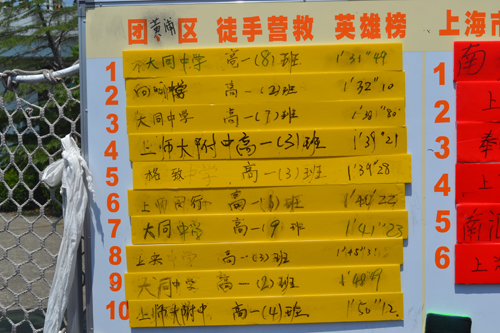 团 黄浦 区 徒手营救 英雄榜 上海市
1 大同中学 高一(8)班 1'31"49
2 向明中学 高一(2)班 1'32"10
3 大同中学 高一(7)班 1'38"80
4 上师大附中高一(3)班 1'39"21
5 格致中学 高一(3)班 1'39"28
6 上师闵行 高一(8)班 1'40"22
7 大同中学 高一(9)班 1'41"23
8 上实中学 高一(3)班 1'45"31
9 大同中学 高一(2)班 1'48"
10 上师大附中 高一(4)班 1'50"12
1 南
2 上
3 奉
4 上
5 南汇
6 上